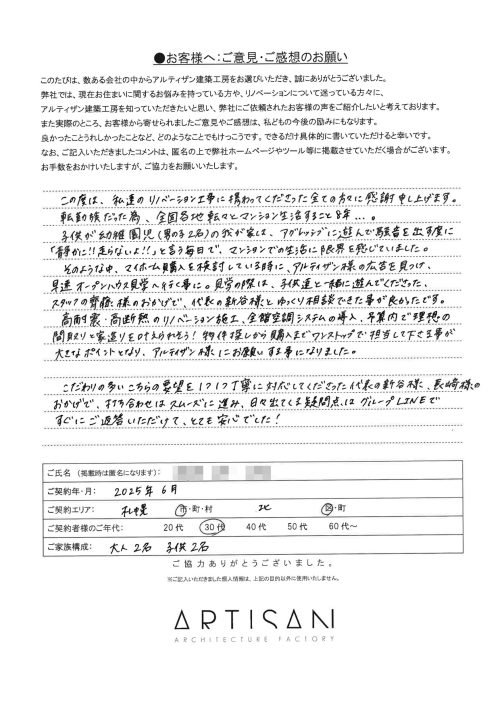 ●お客様へ：ご意見・ご感想のお願い
このたびは、数ある会社の中からアルティザン建築工房をお選びいただき、誠にありがとうございました。
弊社では、現在お住まいに関するお悩みを持っている方や、リノベーションについて迷っている方々に、
アルティザン建築工房を知っていただきたいと思い、弊社にご依頼されたお客様の声をご紹介したいと考えております。
また実際のところ、お客様から寄せられましたご意見やご感想は、私どもの今後の励みにもなります。
良かったことうれしかったことなど、どのようなことでもけっこうです。できるだけ具体的に書いていただけると幸いです。
なお、ご記入いただきましたコメントは、匿名の上で弊社ホームページやツール等に掲載させていただく場合がございます。
お手数をおかけいたしますが、ご協力をお願いいたします。
この度は、私達のリノベーション工事に携わってくださった全ての方々に感謝申し上げます。
転勤族だった為、全国各地転々とマンション生活すること8年...。
子供が幼稚園児(男の子2名)の我が家は、アグレッシブに遊んで騒音を出す度に
「静かに!!走らないよ!!」と言う毎日で、マンションでの生活に限界を感じていました。
そのような中、マイホーム購入を検討している時に、アルティザン様の広告を見つけ、
早速オープンハウス見学へ行く事に。見学の際は、子供達と一緒に遊んでくださった、
スタッフの齊藤様のおかげで、代表の新谷様とゆっくり相談できた事が良かったです。
高耐震・高断熱のリノベーション施工、全館空調システムの導入、予算内で理想の
間取りと家造りを叶えられそう！物件探しから購入までワンストップで担当して下さる事が
大きなポイントとなり、アルティザン様にお願いする事になりました。
こだわりの多いこちらの要望を1つ1つ丁寧に対応してくださった代表の新谷様、長崎様の
おかげで、打ち合わせはスムーズに進み、日々出てくる疑問点はグループLINEで
すぐにご返答いただけて、とても安心でした！
ご氏名（掲載時は匿名になります）：
ご契約年・月： 2025年 6月
ご契約エリア： 札幌 市・町・村 北 区・町
ご契約者様のご年代： 20代 30代 40代 50代 60代～
ご家族構成： 大人 2名 子供 2名
ご協力ありがとうございました。
※ご記入いただきました個人情報は、上記の目的以外に使用いたしません。
ARTISAN
ARCHITECTURE FACTORY